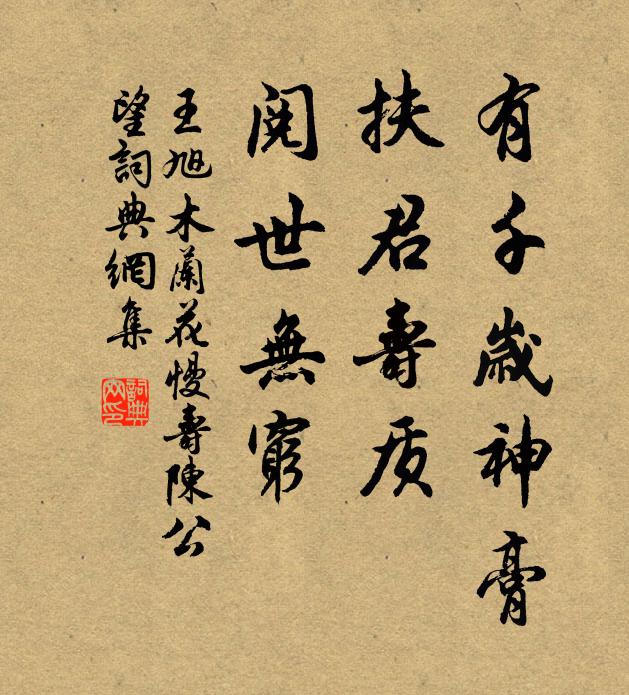 有千歲神膏
扶君壽质
閱世無窮
王旭木蘭花慢壽陳公
望詞典網集
詞典网印